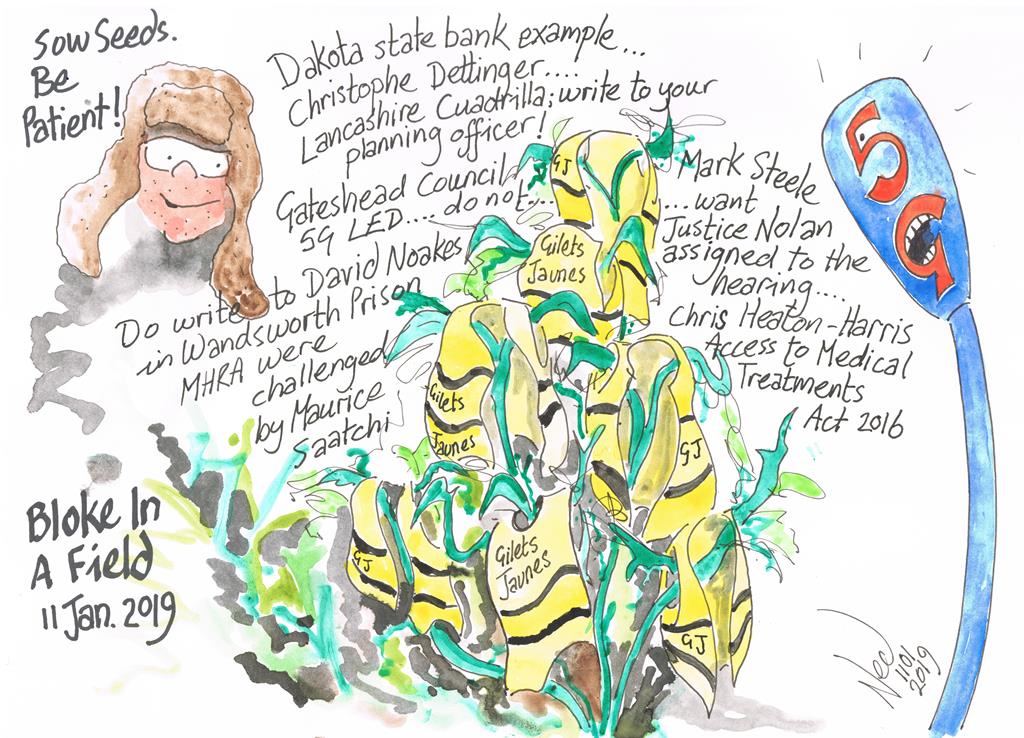 Sow Seeds.
Be
Patient!
Dakota state bank example...
Christophe Dettinger....
Lancashire Cuadrilla; write to your
planning officer!
Gateshead Council
5G LED.... do not...
Mark Steele
....want
Justice Nolan
assigned to the
hearing....
Do write to David Noakes
in Wandsworth Prison
MHRA were
challenged
by Maurice
Saatchi
Chris Heaton-Harris
Access to Medical
Treatments
Act 2016
5G
GJ
Gilets
Jaunes
Gilets
Jaunes
GJ
GJ
Gilets
Jaunes
GJ
Bloke In
A Field
11 Jan. 2019
1101
2019